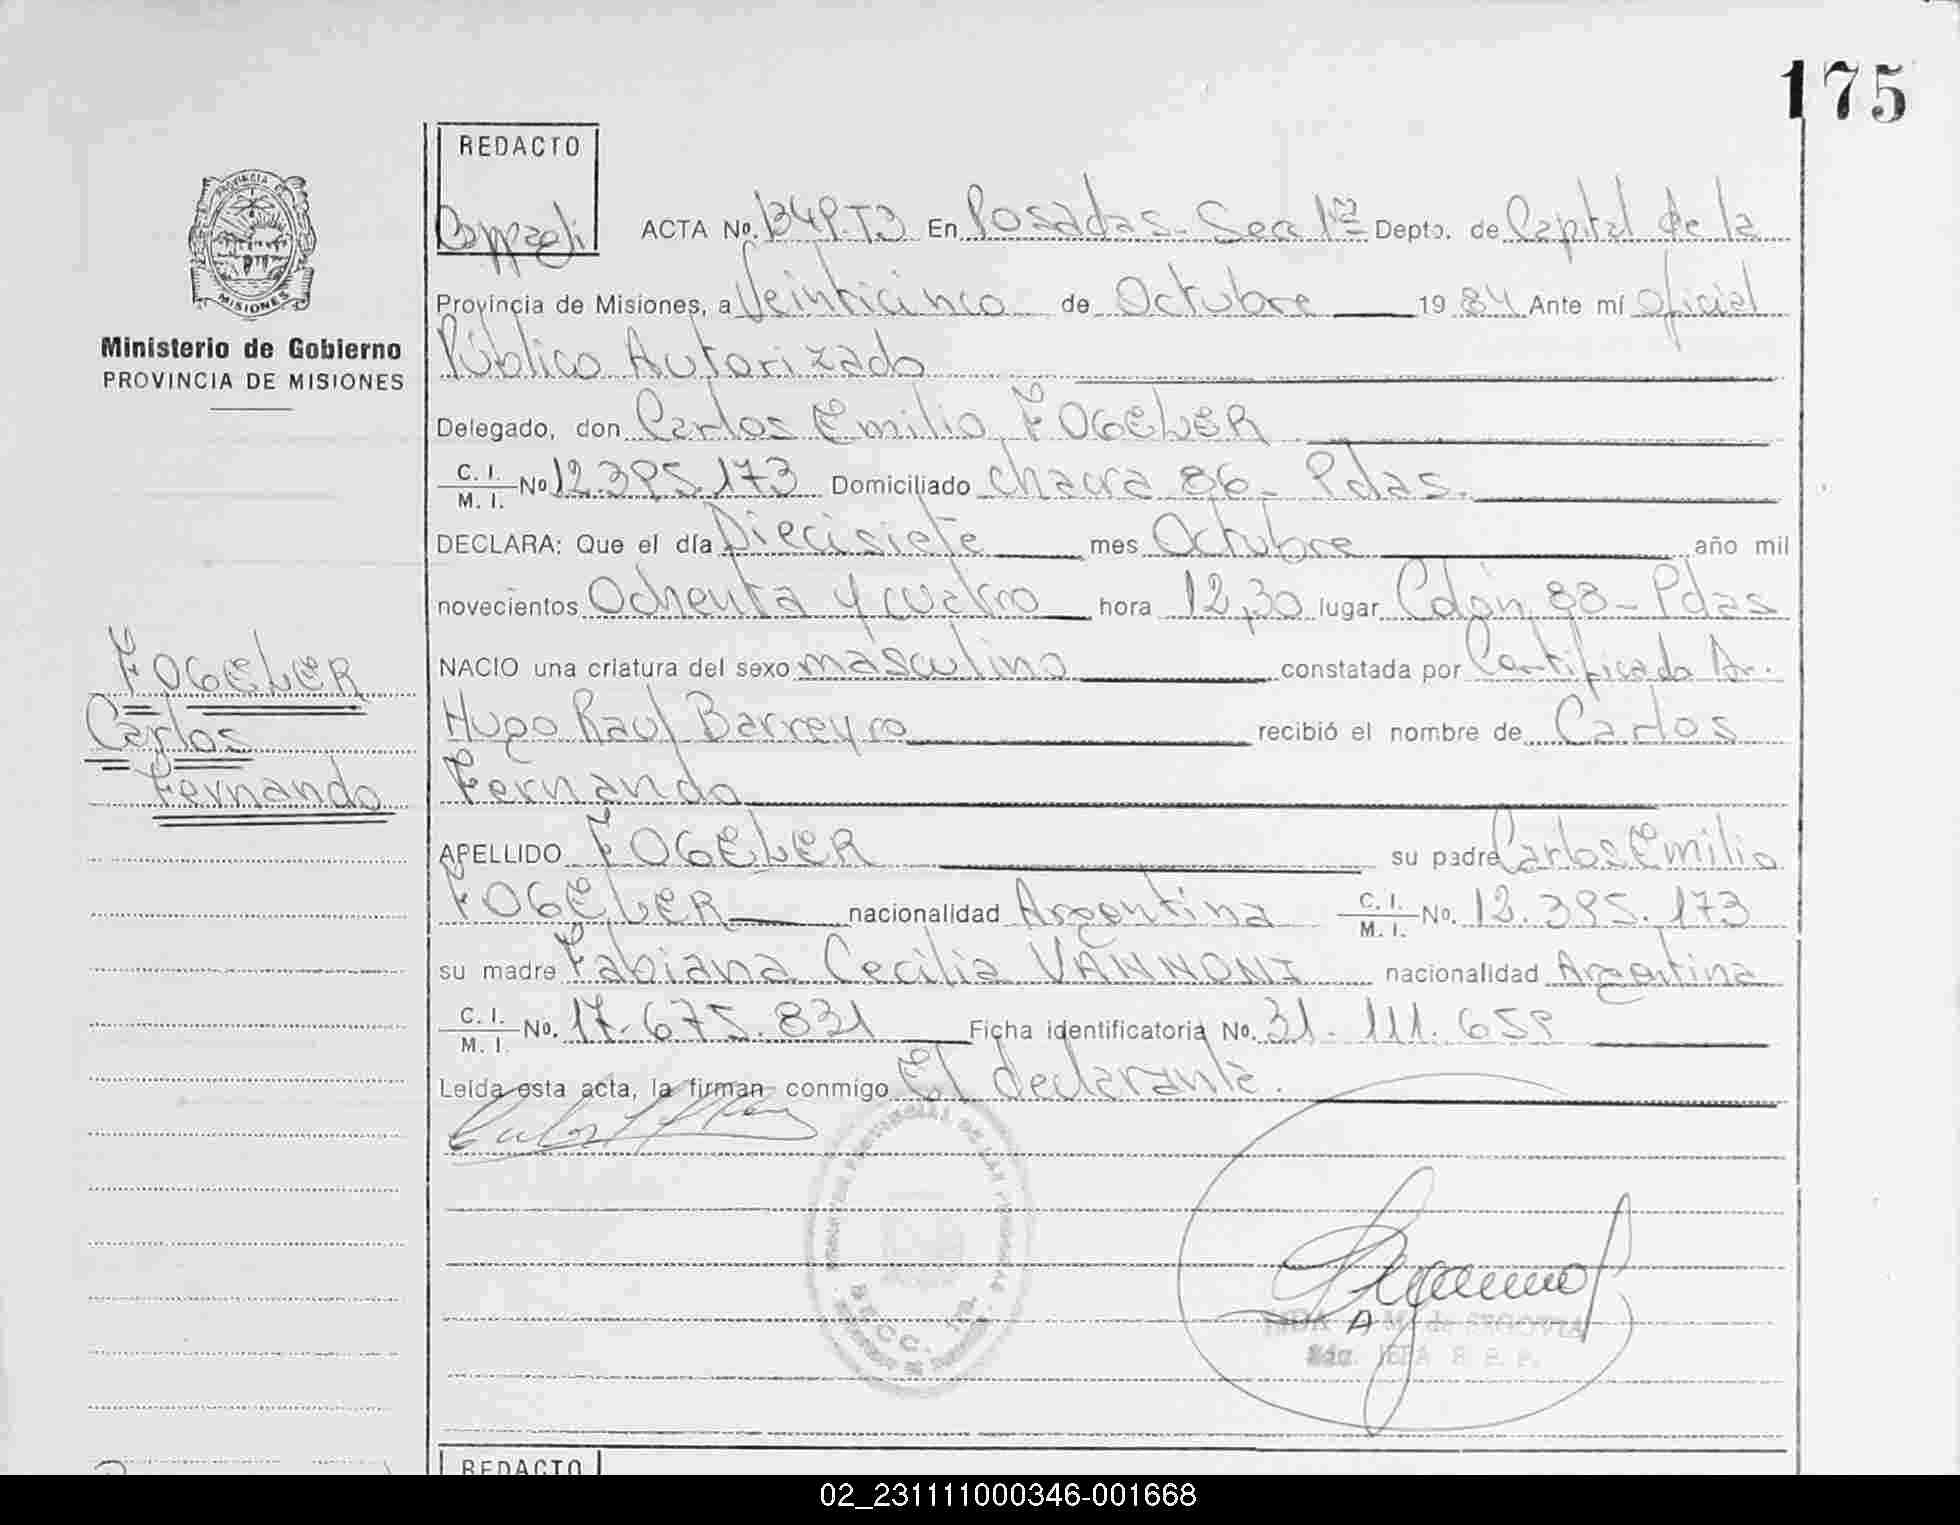 175
REDACTO
PROVINCIA DE
MISIONES
ACTA No. 1349.T3 En Posadas - Sec 1ra Depto. de Capital de la
Provincia de Misiones, a Veinticinco de Octubre 19 84 Ante mí oficial
Ministerio de Gobierno
PROVINCIA DE MISIONES
Público Autorizado
Delegado, don Carlos Emilio FOGELER
C. I. / M. I. No 12.395.173 Domiciliado chacra 86 - Pdas.
DECLARA: Que el día Diecisiete mes Octubre año mil
novecientos Ochenta y cuatro hora 12,30 lugar Colón 88 - Pdas
FOGELER
Carlos
Fernando
NACIO una criatura del sexo masculino constatada por Certificado Dr.
Hugo Raul Barreyro recibió el nombre de Carlos
Fernando
APELLIDO FOGELER su padre Carlos Emilio
FOGELER nacionalidad Argentina C. I. / M. I. No. 12.395.173
su madre Fabiana Cecilia VANNONI nacionalidad Argentina
C. I. / M. I. No. 17.675.831 Ficha identificatoria No. 31.111.659
Leída esta acta, la firman conmigo El declarante.
A M. de SEGOVIA
REDACTO
02_231111000346-001668